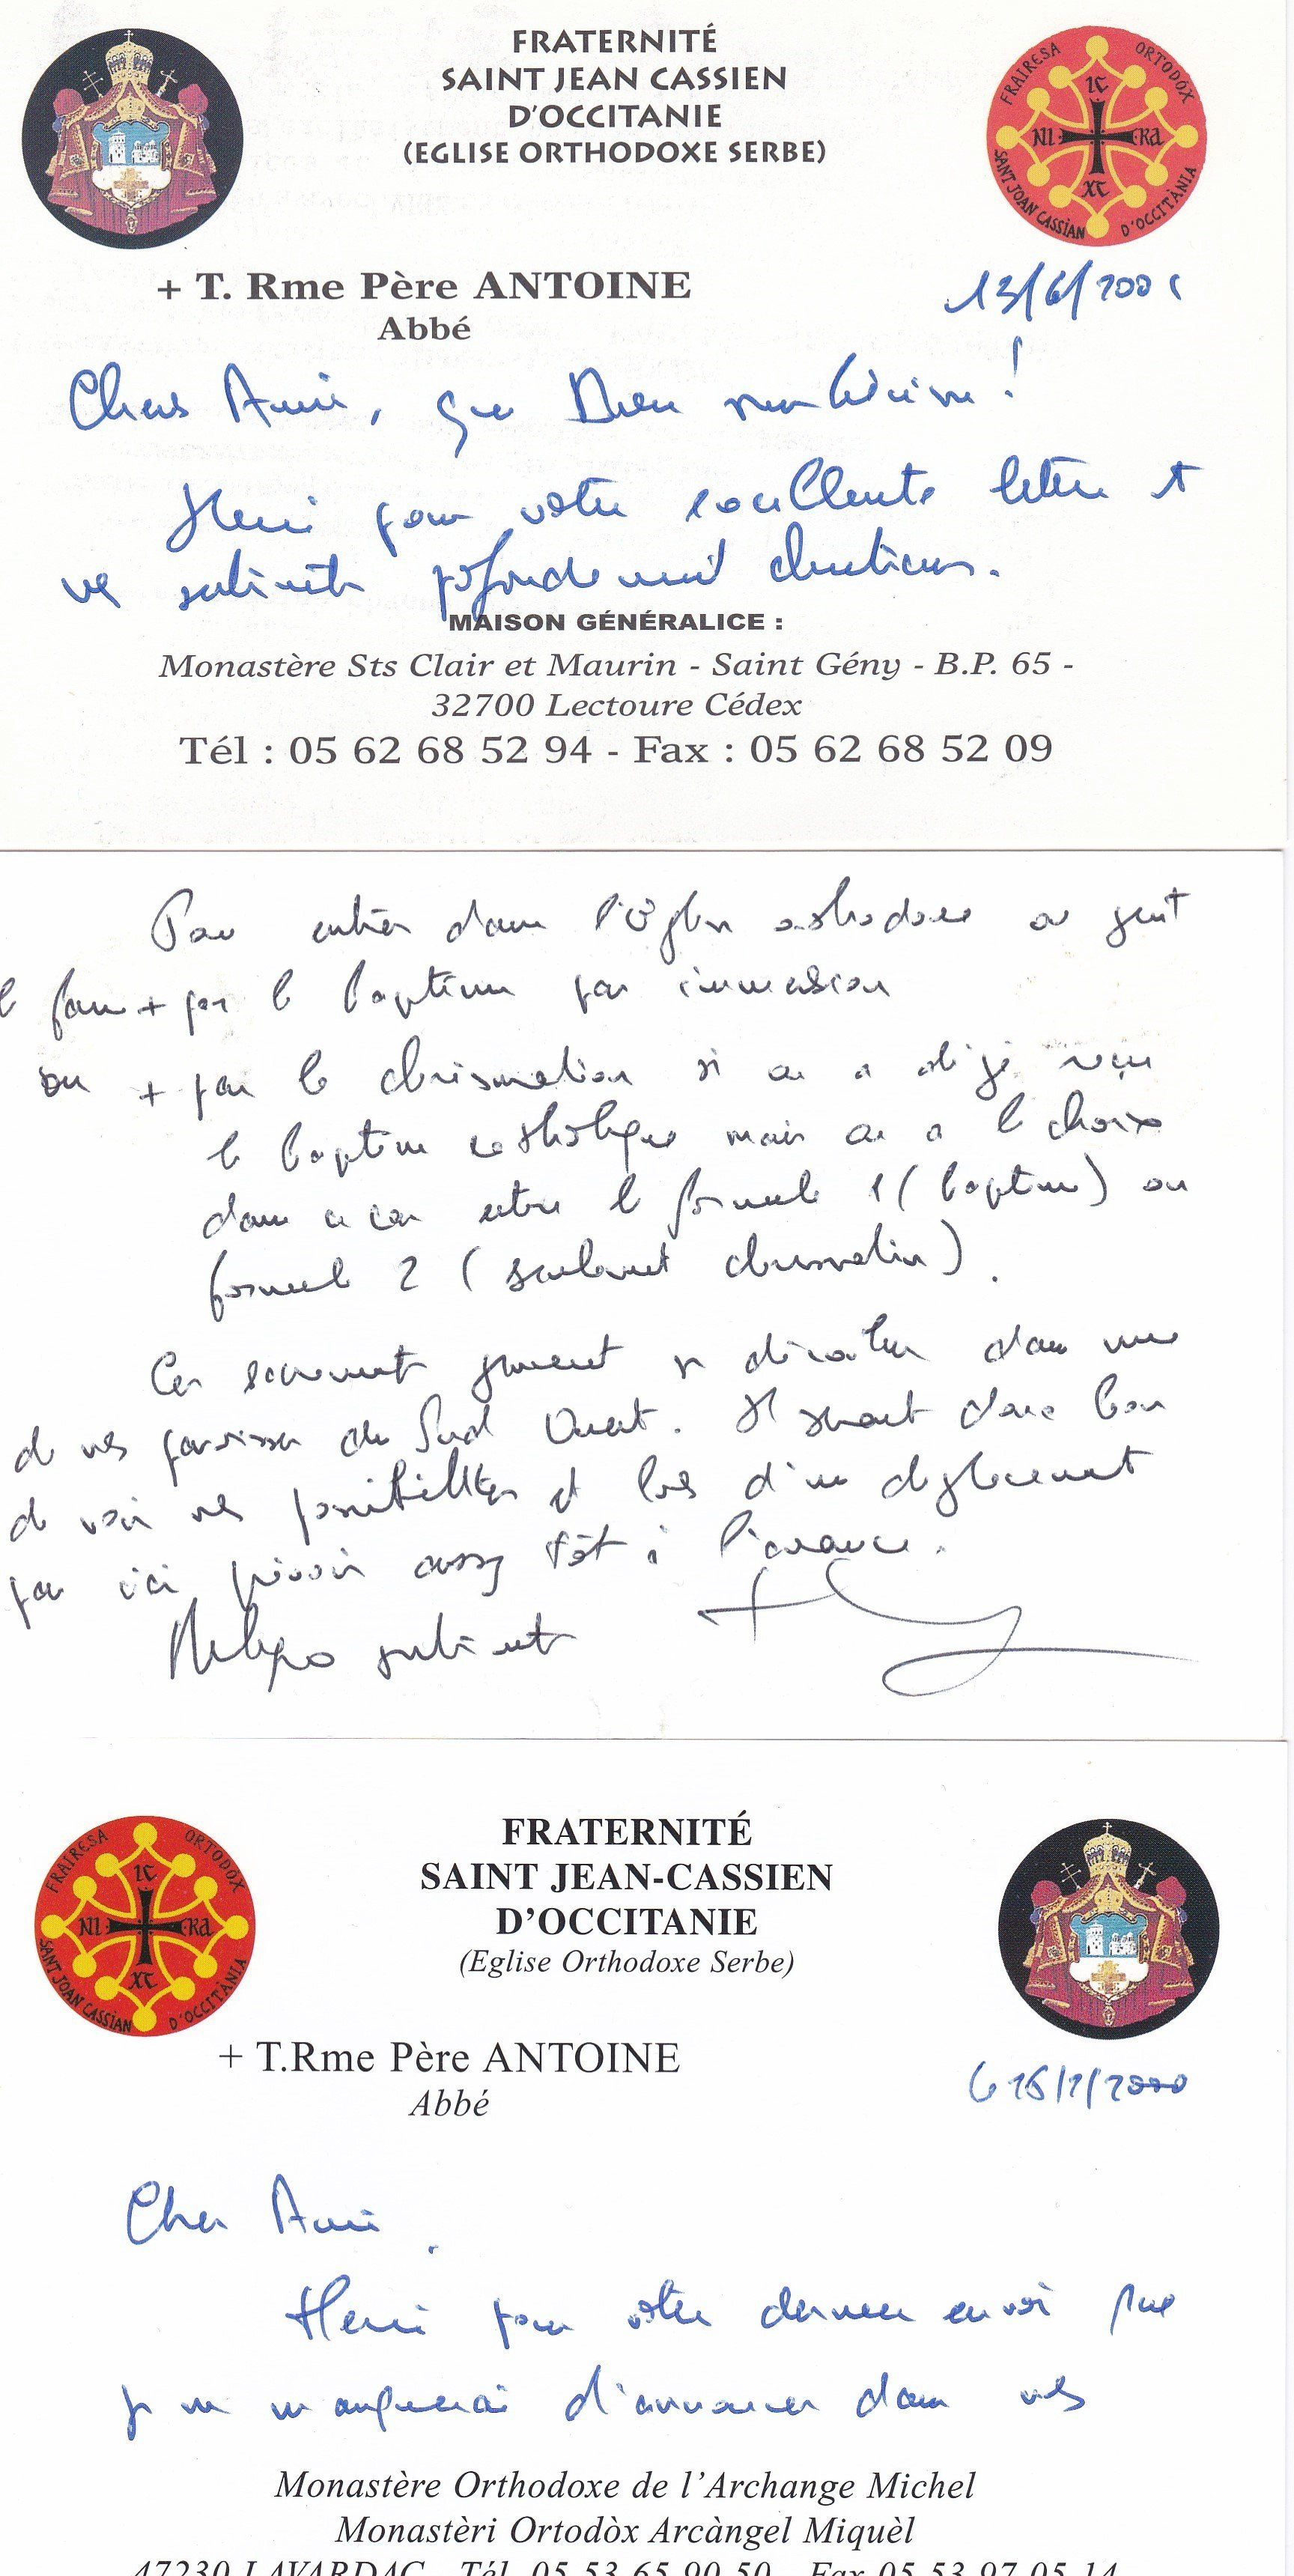 FRATERNITÉ
SAINT JEAN CASSIEN
D'OCCITANIE
(EGLISE ORTHODOXE SERBE)
FRAIRESA ORTODÒX
IC
NI KA
XC
SANT JOAN CASSÌAN D'OCCITÀNIA
+ T. Rme Père ANTOINE
Abbé
13/6/200
Chers Amis, que Dieu bénisse !
Merci pour votre excellente lettre et
vos sentiments profondément chrétiens.
MAISON GÉNÉRALICE :
Monastère Sts Clair et Maurin - Saint Gény - B.P. 65 -
32700 Lectoure Cédex
Tél : 05 62 68 52 94 - Fax : 05 62 68 52 09
Pour entrer dans l'Eglise orthodoxe on peut
le faire + par le baptême par immersion
ou + par la chrismation si on a déjà reçu
le baptême catholique mais on a le choix
dans ce cas entre la formule 1 (baptême) ou
formule 2 (seulement chrismation).
Ces sacrements peuvent se dérouler dans une
de nos paroisses du Sud Ouest. Il serait donc bon
de voir vos possibilités et lors d'un déplacement
par ici prévoir assez tôt à l'avance.
sentiments
FRATERNITÉ
SAINT JEAN-CASSIEN
D'OCCITANIE
(Eglise Orthodoxe Serbe)
FRAIRESA ORTODÒX
IC
NI KA
XC
SANT JOAN CASSÌAN D'OCCITÀNIA
+ T.Rme Père ANTOINE
Abbé
Cher Ami.
Merci pour votre dernier envoi que
je ne manquerai d'annoncer dans nos
Monastère Orthodoxe de l'Archange Michel
Monastèri Ortodòx Arcàngel Miquèl
47230 LAVARDAC - Tél. 05 53 65 90 50 - Fax 05 53 97 05 14